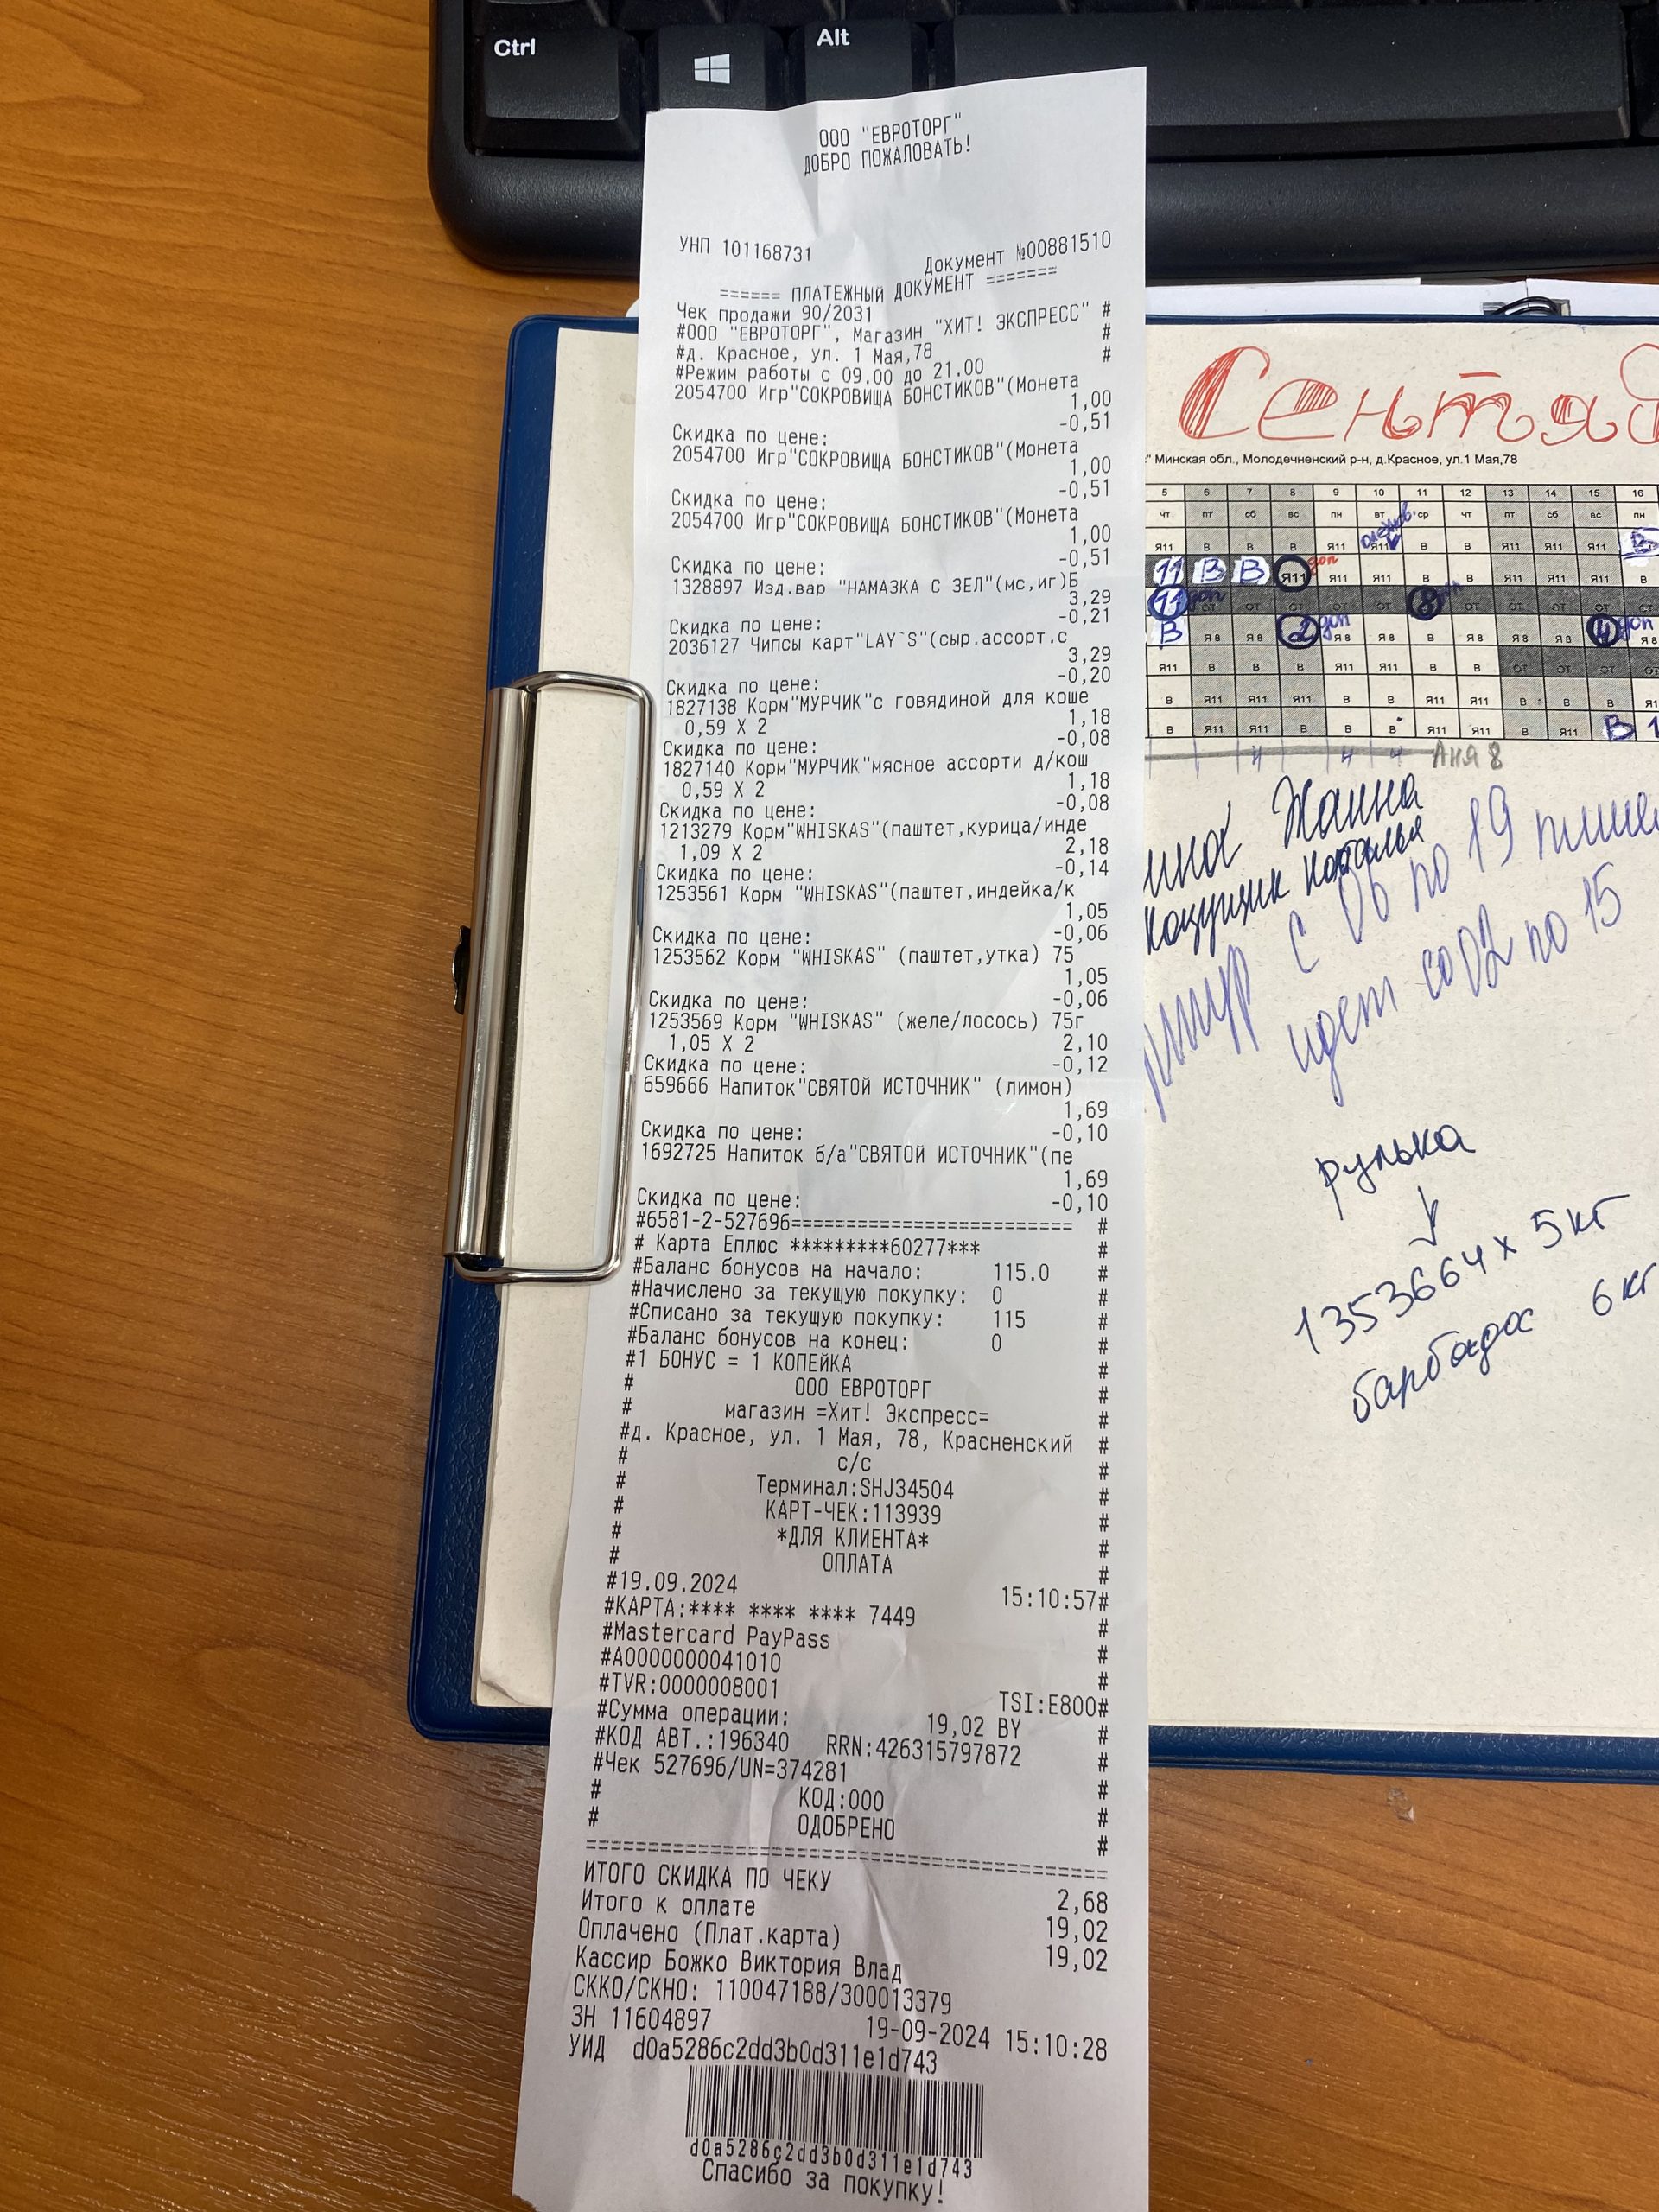 Ctrl
Alt
ООО "ЕВРОТОРГ"
ДОБРО ПОЖАЛОВАТЬ!
УНП 101168731 Документ №00881510
====== ПЛАТЕЖНЫЙ ДОКУМЕНТ =======
Чек продажи 90/2031
#ООО "ЕВРОТОРГ", Магазин "ХИТ! ЭКСПРЕСС" #
#д. Красное, ул. 1 Мая,78 #
#Режим работы с 09.00 до 21.00 #
2054700 Игр"СОКРОВИЩА БОНСТИКОВ"(Монета
1,00
Скидка по цене: -0,51
2054700 Игр"СОКРОВИЩА БОНСТИКОВ"(Монета
1,00
Скидка по цене: -0,51
2054700 Игр"СОКРОВИЩА БОНСТИКОВ"(Монета
1,00
Скидка по цене: -0,51
1328897 Изд.вар "НАМАЗКА С ЗЕЛ"(мс,иг)Б
3,29
Скидка по цене: -0,21
2036127 Чипсы карт"LAY`S"(сыр.ассорт.с
3,29
Скидка по цене: -0,20
1827138 Корм"МУРЧИК"с говядиной для коше
0,59 X 2 1,18
Скидка по цене: -0,08
1827140 Корм"МУРЧИК"мясное ассорти д/кош
0,59 X 2 1,18
Скидка по цене: -0,08
1213279 Корм"WHISKAS"(паштет,курица/инде
1,09 X 2 2,18
Скидка по цене: -0,14
1253561 Корм "WHISKAS"(паштет,индейка/к
1,05
Скидка по цене: -0,06
1253562 Корм "WHISKAS" (паштет,утка) 75
1,05
Скидка по цене: -0,06
1253569 Корм "WHISKAS" (желе/лосось) 75г
1,05 X 2 2,10
Скидка по цене: -0,12
659666 Напиток"СВЯТОЙ ИСТОЧНИК" (лимон)
1,69
Скидка по цене: -0,10
1692725 Напиток б/а"СВЯТОЙ ИСТОЧНИК"(пе
1,69
Скидка по цене: -0,10
#6581-2-527696======================== #
# Карта Еплюс *********60277*** #
#Баланс бонусов на начало: 115.0 #
#Начислено за текущую покупку: 0 #
#Списано за текущую покупку: 115 #
#Баланс бонусов на конец: 0 #
#1 БОНУС = 1 КОПЕЙКА #
# ООО ЕВРОТОРГ #
# магазин =Хит! Экспресс= #
#д. Красное, ул. 1 Мая, 78, Красненский #
# с/с #
# Терминал:SHJ34504 #
# КАРТ-ЧЕК:113939 #
# *ДЛЯ КЛИЕНТА* #
# ОПЛАТА #
#19.09.2024 15:10:57#
#КАРТА:**** **** **** 7449 #
#Mastercard PayPass #
#A0000000041010 #
#TVR:0000008001 TSI:E800#
#Сумма операции: 19,02 BY #
#КОД АВТ.:196340 RRN:426315797872 #
#Чек 527696/UN=374281 #
# КОД:000 #
# ОДОБРЕНО #
ИТОГО СКИДКА ПО ЧЕКУ 2,68
Итого к оплате 19,02
Оплачено (Плат.карта) 19,02
Кассир Божко Виктория Влад
СККО/СКНО: 110047188/300013379
ЗН 11604897 19-09-2024 15:10:28
УИД d0a5286c2dd3b0d311e1d743
d0a5286c2dd3b0d311e1d743
Спасибо за покупку!
Сентяб
" Минская обл., Молодечненский р-н, д.Красное, ул.1 Мая,78
5 6 7 8 9 10 11 12 13 14 15 16
чт пт сб вс пн вт ср чт пт сб вс пн
Я11 В В В Я11 Я11 В В Я11 Я11 Я11 В
11 В В Я11 доп Я11 Я11 В В Я11 Я11 Я11 В
11 доп ОТ ОТ ОТ ОТ 8 доп ОТ ОТ ОТ ОТ ОТ
В Я8 Я8 2 доп Я8 Я8 В Я8 Я8 Я8 4 доп Я8
Я11 В В В Я11 Я11 В В ОТ ОТ ОТ В
В Я11 Я11 Я11 В В Я11 Я11 В В В Я1
В Я11 Я11 В В В Я11 Я11 В Я11 В 1
4 4 4 Аня 8
Жанна
Наталья
с 06 по 19
идет со 02 по 15
рулька
1353664 x 5кг
барбадос 6кг